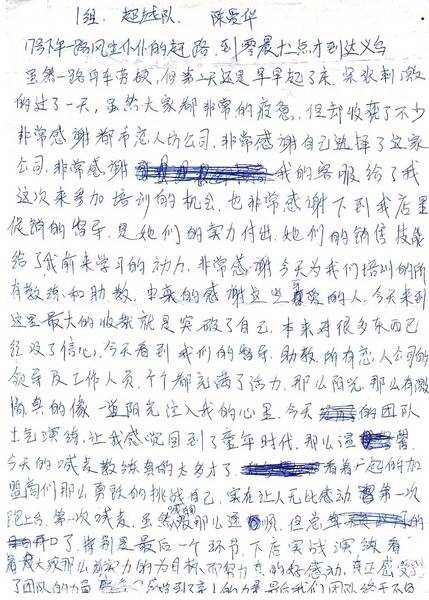 1组 超越队 陈爱华
17号下午一路风尘仆仆的赶路，到零晨十二点才到达义乌
虽然一路舟车劳顿，但第二天还是早早起了床，紧张刺激
的过了一天，虽然大家都非常的疲惫，但却收获了不少
非常感谢都市恋人坊公司，非常感谢自己选择了这家
公司，非常感谢我的客服给了我
这次来参加培训的机会，也非常感谢下到我店里
促销的督导，是她们的实力付出，她们的销售技能
给了我前来学习的动力，非常感谢今天为我们培训的所
有教练和助教，衷衷的感谢这些可爱的人，今天来到
这里最大的收获就是突破了自己，本来对很多东西已
经没了信心，今天看到我们的督导，助教，所有恋人公司的
领导及工作人员，个个都充满了活力，那么阳光，那么有激
情真的像一道阳光注入我的心里，今天的团队
士气演练，让我感觉回到了童年时代，那么温馨，
今天的喊麦教练真的太多才了，看着一起的加
盟商们那么勇敢的挑战自己，实在让人无比感动，第一次
跑上台，第一次喊麦，虽然喊的那么通顺，但总
开口了，特别是最后一个环节，下店实战演练看
着大家那么的实力的为目标而努力真的好感动，真正感受了
了团队的力量